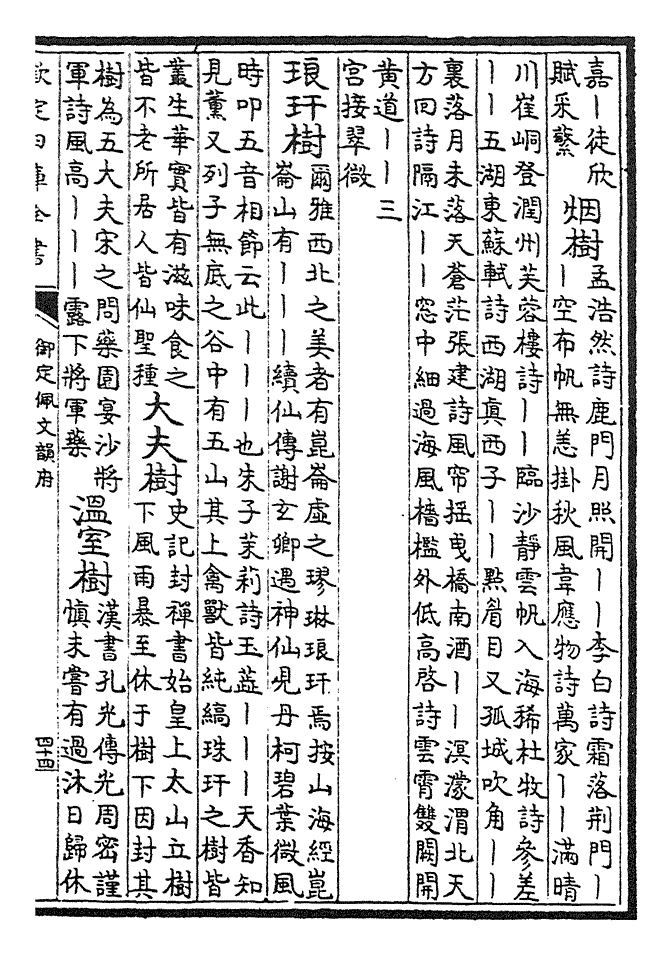 嘉丨徒欣
賦采蘩
烟樹
孟浩然詩鹿門月照開丨丨李白詩霜落荆門丨
丨空布帆無恙掛秋風韋應物詩萬家丨丨滿晴
川崔峒登潤州芙蓉樓詩丨丨臨沙靜雲帆入海稀杜牧詩參差
丨丨五湖東蘇軾詩西湖真西子丨丨點睂目又孤城吹角丨丨
裏落月未落天蒼茫張建詩風帘揺曳橋南酒丨丨溟濛渭北天
方回詩隔江丨丨窓中細過海風檣檻外低高啓詩雲霄雙闕開
黄道丨丨三
宫接翠微
琅玕樹
爾雅西北之美者有崑崙虛之璆琳琅玕焉按山海經崑
崙山有丨丨丨續仙傳謝玄卿遇神仙見丹柯碧葉微風
時叩五音相節云此丨丨丨也朱子茉莉詩玉蕋丨丨丨天香知
見薰又列子無底之谷中有五山其上禽獸皆純縞珠玕之樹皆
叢生華實皆有滋味食之
皆不老所居人皆仙聖種
大夫樹
史記封禪書始皇上太山立樹
下風雨暴至休于樹下因封其
樹為五大夫宋之問藥園宴沙將
軍詩風高丨丨丨露下將軍藥
溫室樹
漢書孔光傳光周密謹
慎未嘗有過沐日歸休
欽定四庫全書
御定佩文韻府
四十四